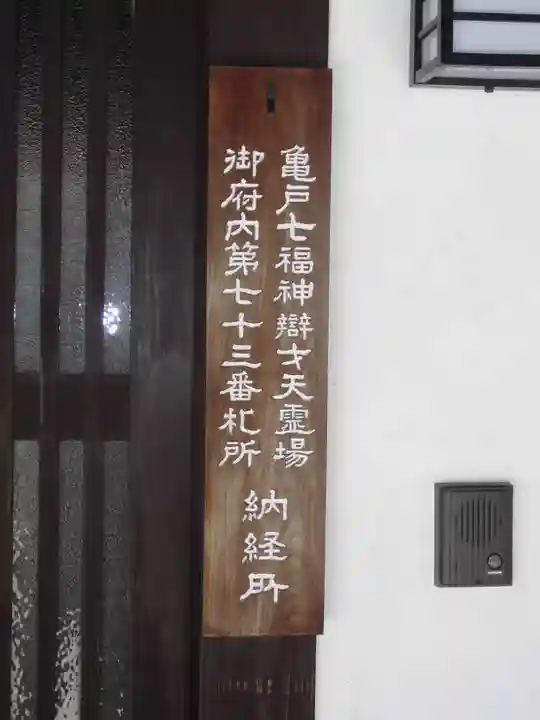 亀戸七福神辯才天霊場
御府内第七十三番札所
納経所